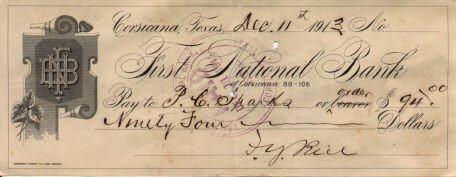 Corsicana, Texas, Dec. 11th 1913 No.
First National Bank
of Corsicana 88-106
order
Pay to P. C. Sparks or bearer $ 94.00
Ninety Four Dollars